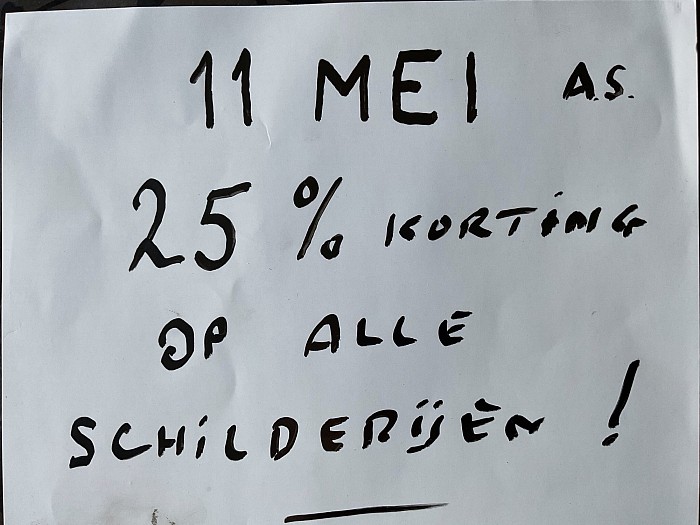 11 MEI A.S.
25 % KORTING
OP ALLE
SCHILDERIJEN !